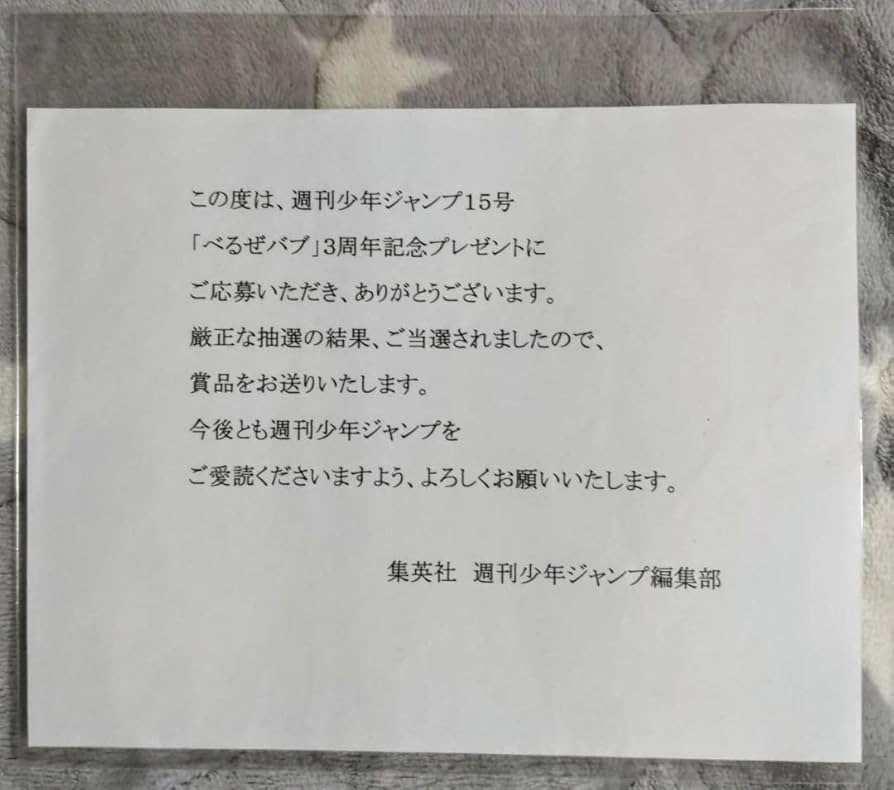 この度は、週刊少年ジャンプ15号
「べるぜバブ」3周年記念プレゼントに
ご応募いただき、ありがとうございます。
厳正な抽選の結果、ご当選されましたので、
賞品をお送りいたします。
今後とも週刊少年ジャンプを
ご愛読くださいますよう、よろしくお願いいたします。
集英社 週刊少年ジャンプ編集部